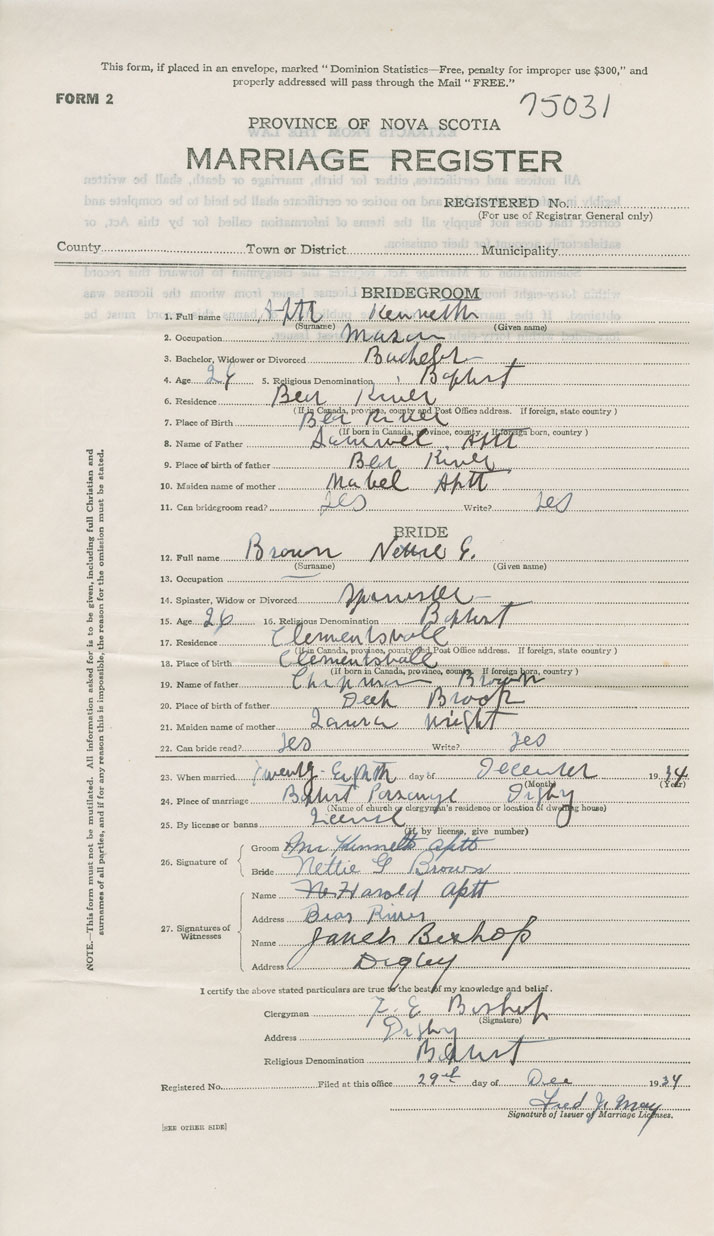 This form, if placed in an envelope, marked "Dominion Statistics—Free, penalty for improper use $300," and
properly addressed will pass through the Mail "FREE."
FORM 2
75031
PROVINCE OF NOVA SCOTIA
MARRIAGE REGISTER
REGISTERED No.
(For use of Registrar General only)
County Town or District Municipality
BRIDEGROOM
1. Full name Aptt Kenneth
(Surname) (Given name)
2. Occupation Mason
3. Bachelor, Widower or Divorced Bachelor
4. Age 24 5. Religious Denomination Baptist
6. Residence Bear River
(If in Canada, province, county and Post Office address. If foreign, state country )
7. Place of Birth Bear River
(If born in Canada, province, county. If foreign born, country )
8. Name of Father Samuel Aptt
9. Place of birth of father Bear River
10. Maiden name of mother Mabel Aptt
11. Can bridegroom read? Yes Write? Yes
BRIDE
12. Full name Brown Nettie G.
(Surname) (Given name)
13. Occupation —
14. Spinster, Widow or Divorced Spinster
15. Age 26 16. Religious Denomination Baptist
17. Residence Clementsvall
(If in Canada, province, county and Post Office address. If foreign, state country )
18. Place of birth Clementsvall
(If born in Canada, province, county. If foreign born, country )
19. Name of father Chipman Brown
20. Place of birth of father Deep Brook
21. Maiden name of mother Laura Wright
22. Can bride read? Yes Write? Yes
23. When married Twenty-Eighth day of December 1934
(Month) (Year)
24. Place of marriage Baptist Parsonage Digby
(Name of church or clergyman's residence or location of dwelling house)
25. By license or banns License
(If, by license, give number)
26. Signature of
Groom Mr Kenneth Aptt
Bride Nettie G Brown
27. Signatures of Witnesses
Name Harold Aptt
Address Bear River
Name Bishop
Address Digby
I certify the above stated particulars are true to the best of my knowledge and belief.
Clergyman F. E. Bishop
(Signature)
Address Digby
Religious Denomination Baptist
Registered No. Filed at this office 29th day of Dec 1934
Fred J. May
Signature of Issuer of Marriage Licenses.
[SEE OTHER SIDE]
NOTE.—This form must not be mutilated. All information asked for is to be given, including full Christian and
surnames of all parties, and if for any reason this is impossible, the reason for the omission must be stated.